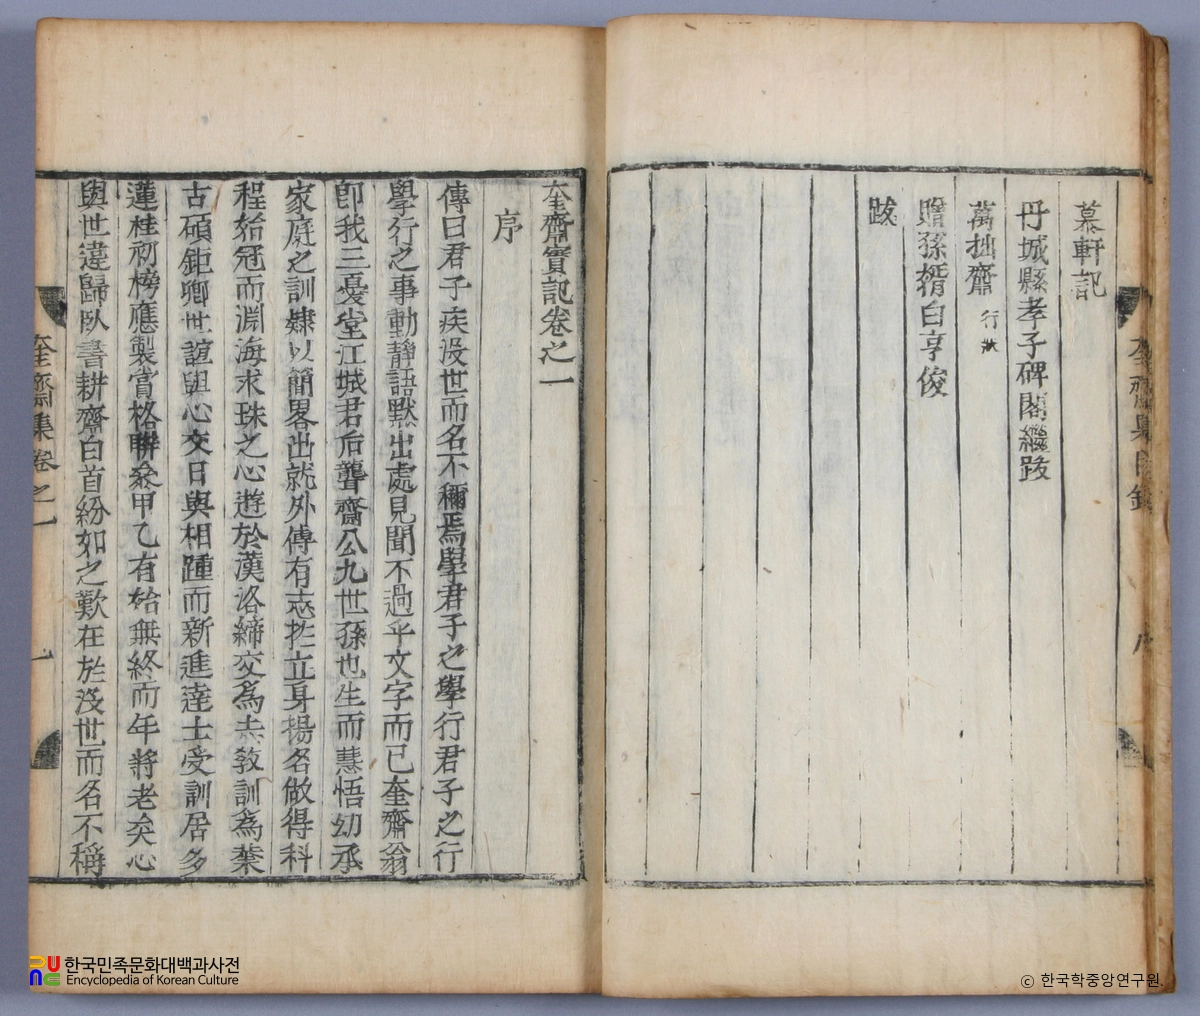 慕軒記
丹城縣孝子碑閣繼跋
萬拙齋行狀
贈孫壻白亨俊
跋
奎齋實記卷之一
序
傳曰君子疾没世而名不稱焉學君子之學行君子之行
學行之事動靜語默出處見聞不過乎文字而已奎齋翁
卽我三憂堂江城君后聾齋公九世孫也生而慧悟幼承
家庭之訓隷以簡畧出就外傅有志於立身揚名做得科
程始冠而淵海求珠之心遊於漢洛締交爲 敎訓爲葉
古碩鉅卿世誼與心交日與相踵而新進達士受訓居多
蓮桂初榜應製賞格聯叅甲乙有始無終而年將老矣心
與世違歸臥書耕齋白首紛如之歎在於没世而名不稱
奎齋集卷之一
一
한국민족문화대백과사전
Encyclopedia of Korean Culture
ⓒ 한국학중앙연구원